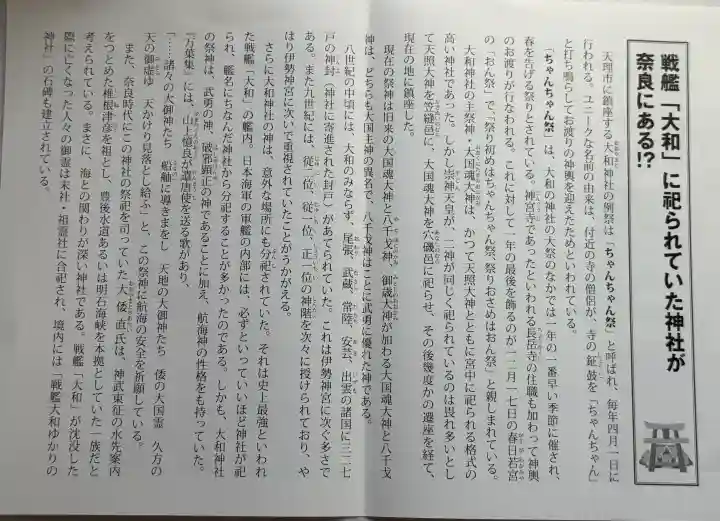 戦艦「大和」に祀られていた神社が
奈良にある!?
天理市に鎮座する大和神社の例祭は「ちゃんちゃん祭」と呼ばれ、毎年四月一日に
行われる。ユニークな名前の由来は、付近の寺の僧侶が、寺の鉦鼓を「ちゃんちゃん」
と打ち鳴らしてお渡りの神輿を迎えたためといわれている。
「ちゃんちゃん祭」は、大和の神社の大祭のなかでは一年の一番早い季節に催され、
春を告げる祭りとされている。神宮寺であったといわれる長岳寺の住職も加わって神輿
のお渡りが行なわれる。これに対して一年の最後を飾るのが一二月一七日の春日若宮
の「おん祭」で、「祭り初めはちゃんちゃん祭、祭りおさめはおん祭」と親しまれている。
大和神社の主祭神・大国魂大神は、かつて天照大神とともに宮中に祀られる格式の
高い神社であった。しかし崇神天皇が、二神が同じく祀られているのは畏れ多いとし
て天照大神を笠縫邑に、大国魂大神を穴磯邑に祀らせ、その後幾度かの遷座を経て、
現在の地に鎮座した。
現在の祭神は旧来の大国魂大神と八千戈神、御歳大神が加わる大国魂大神と八千戈
神は、どちらも大国主神の異名で、八千戈神はことに武勇に優れた神である。
八世紀の中頃には、大和のみならず、尾張、武蔵、常陸、安芸、出雲の諸国に三二七
戸の神封（神社に寄進された封戸）があてられていた。これは伊勢神宮に次ぐ多さで
ある。また九世紀には、従二位、従一位、正一位の神階を次々に授けられており、や
はり伊勢神宮に次いで重視されていたことがうかがえる。
さらに大和神社の神は、意外な場所にも分祀されていた。それは史上最強といわれ
た戦艦「大和」の艦内。日本海軍の軍艦の内部には、必ずといっていいほど神社が祀
られ、艦名にちなんだ神社から分祀することが多かったのである。しかも、大和神社
の祭神は、武勇の神、破邪顕正の神であることに加え、航海神の性格をも持っていた。
『万葉集』には、山上憶良が遣唐使を送る歌があり、
「……諸々の大御神たち 船舳に導きまをし 天地の大御神たち 倭の大国霊 久方の
天の御虚ゆ 天かけり見落とし給ふ」と、この祭神に航海の安全を祈願している。
また、奈良時代にこの神社の祭祀を司っていた大倭直氏は、神武東征の水先案内
をつとめた椎根津彦を祖とし、豊後水道あるいは明石海峡を本拠としていた一族だと
考えられている。まさに、海との関わりが深い神社である。戦艦「大和」が沈没した
際に亡くなった人々の御霊は末社・祖霊社に合祀され、境内には「戦艦大和ゆかりの
神社」の石碑も建立されている。